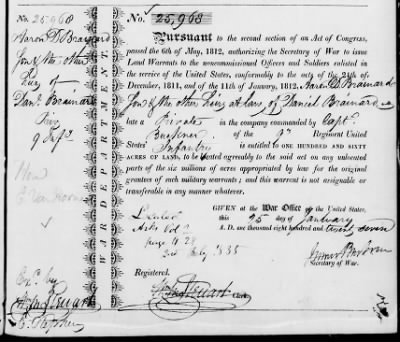 No. 25,968
Aaron D. Brainard
Son & the other
Heirs of
Danl. Brainard
Priv
9 Inft.
WAR DEPARTMENT.
No. 25,968
Pursuant to the second section of an Act of Congress,
passed the 6th of May, 1812, authorizing the Secretary of War to issue
Land Warrants to the noncommissioned Officers and Soldiers enlisted
in the service of the United States, conformably to the acts of the 24th of
December, 1811, and of the 11th of January, 1812, Aaron D. Brainard
Son & the other Heirs at law, of Daniel Brainard
late a Private in the company commanded by Capt.
of the 9th Regiment United
States' Infantry is entitled to ONE HUNDRED AND SIXTY
ACRES OF LAND, to be located agreeably to the said act on any unlocated
parts of the six millions of acres appropriated by law for the original
grantees of such military warrants; and this warrant is not assignable or
transferable in any manner whatever.
GIVEN at the War Office of the United States,
this 25 day of January
A. D. one thousand eight hundred and twenty seven
Secretary of War.
Registered.
Clerk